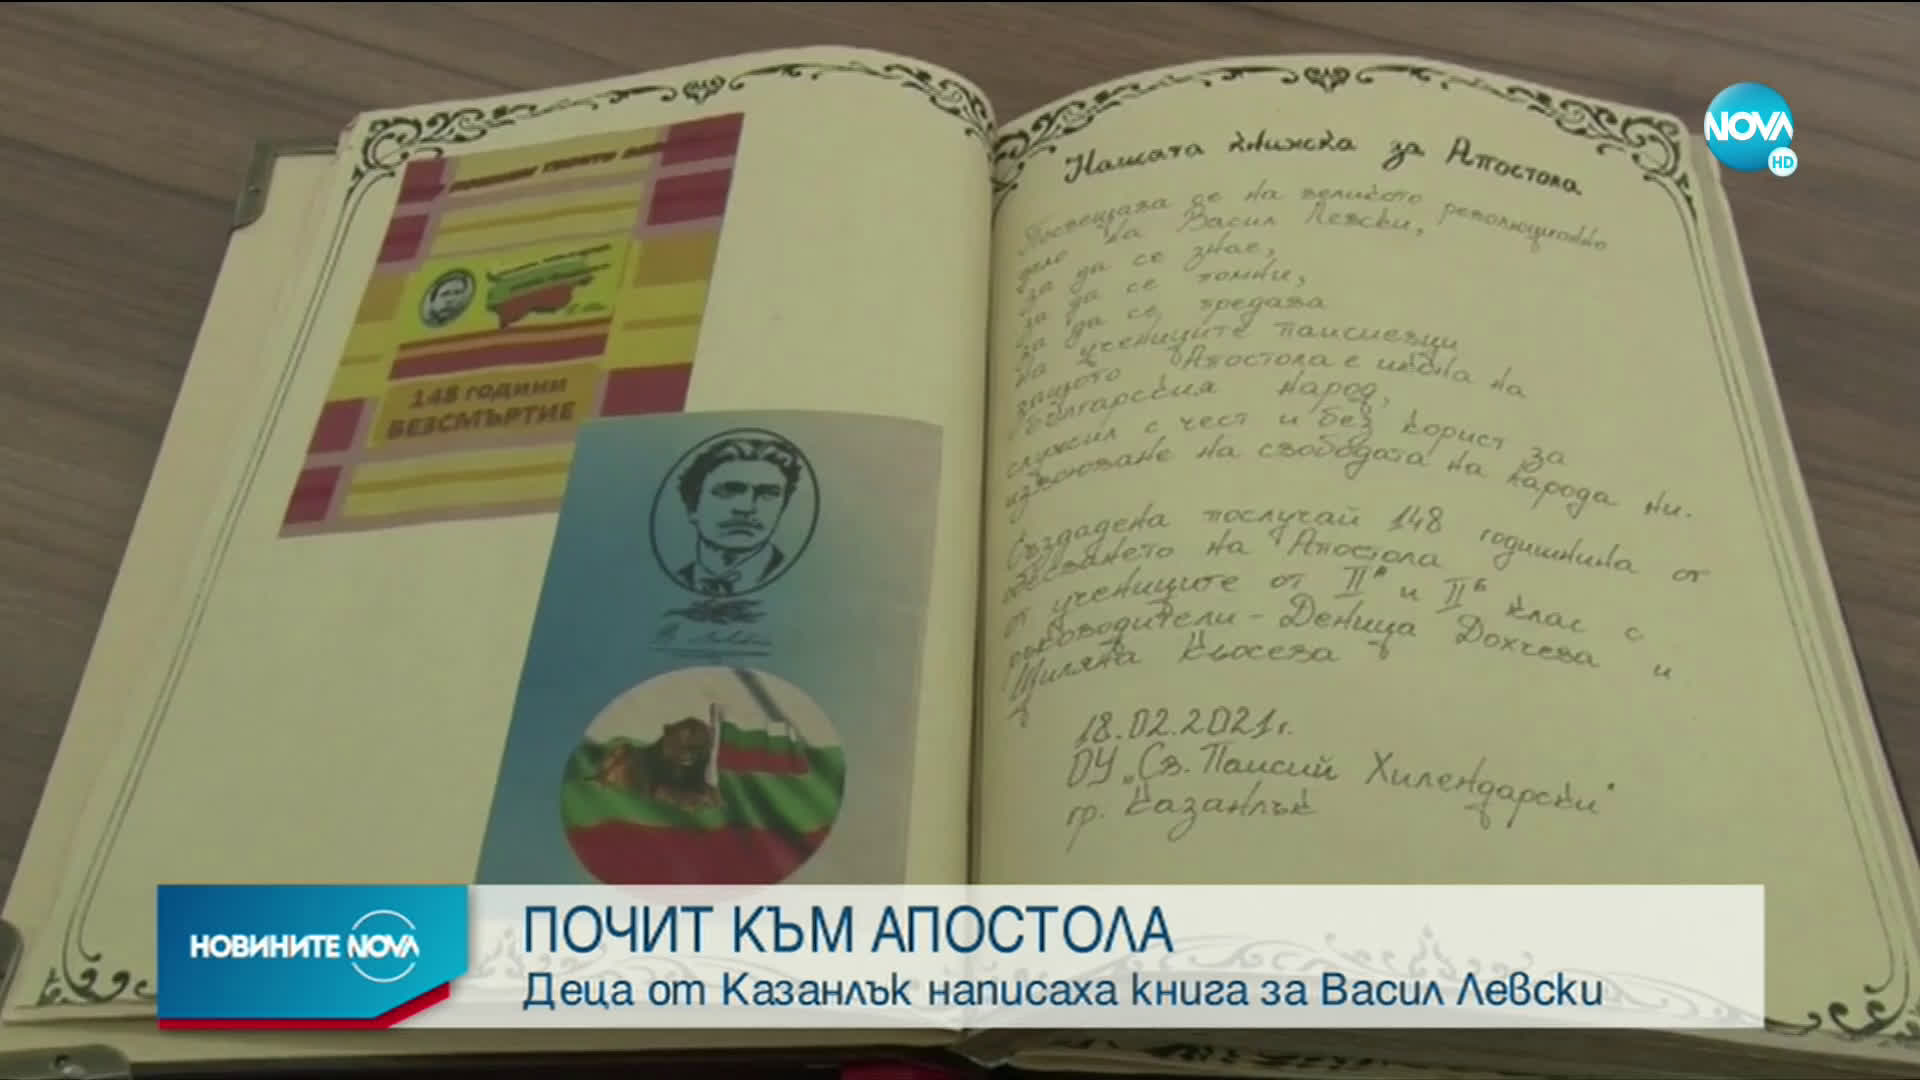 NOVA
HD
148 ГОДИНИ
БЕЗСМЪРТИЕ
Нашата книжка за Апостола
Посвещава се на великото революционно
дело на Васил Левски,
за да се знае,
за да се помни,
за да се предава
на учениците паисиевци
защото Апостола е икона на
българския народ,
служил с чест и без корист за
извоюване на свободата на народа ни.
Създадена послучай 148 годишнина от
обесването на Апостола
от учениците от IIА и IIБ клас с
ръководители - Деница Дохчева и
Миляна Кьосева
18.02.2021г.
ОУ „Св. Паисий Хилендарски"
гр. Казанлък
НОВИНИТЕ NOVA
ПОЧИТ КЪМ АПОСТОЛА
Деца от Казанлък написаха книга за Васил Левски